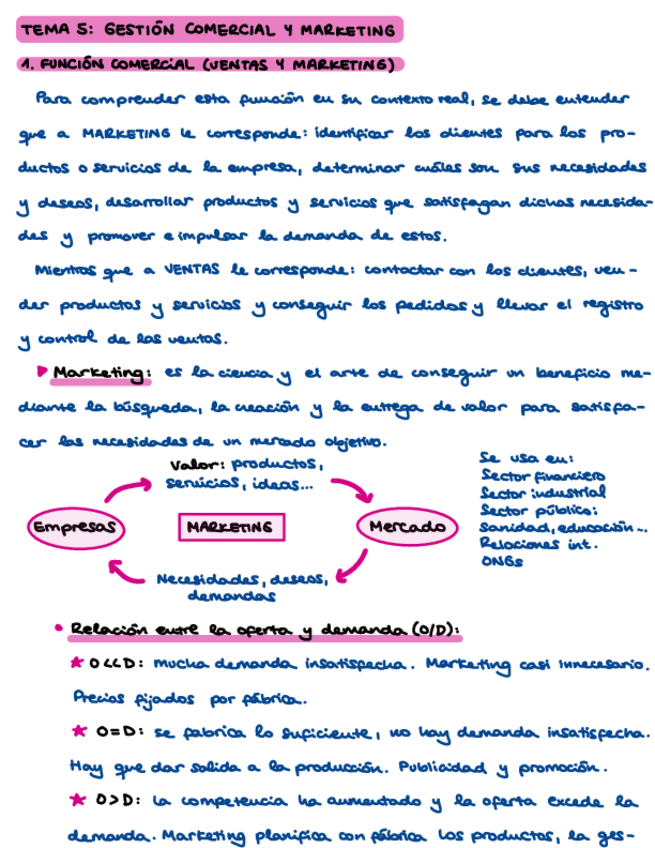 TEMA 5: GESTIÓN COMERCIAL Y MARKETING
1. FUNCIÓN COMERCIAL (VENTAS Y MARKETING)
Para comprender esta función en su contexto real, se debe entender
que a MARKETING le corresponde: identificar los clientes para los pro-
ductos o servicios de la empresa, determinar cuáles son sus necesidades
y deseos, desarrollar productos y servicios que satisfagan dichas necesida-
des y promover e impulsar la demanda de estos.
Mientras que a VENTAS le corresponde: contactar con los clientes, ven-
der productos y servicios y conseguir los pedidos y llevar el registro
y control de las ventas.
Marketing: es la ciencia y el arte de conseguir un beneficio me-
diante la búsqueda, la creación y la entrega de valor para satisfa-
cer las necesidades de un mercado objetivo.
Valor: productos,
servicios, ideas...
Empresas
MARKETING
Mercado
Necesidades, deseos,
demandas
Se usa en:
Sector financiero
Sector industrial
Sector público:
sanidad, educación...
Relaciones int.
ONGs
• Relación entre la oferta y demanda (O/D):
★ O<<D: mucha demanda insatisfecha. Marketing casi innecesario.
Precios fijados por fábrica.
★ O=D: se fabrica lo suficiente, no hay demanda insatisfecha.
Hay que dar salida a la producción. Publicidad y promoción.
★ O>D: la competencia ha aumentado y la oferta excede la
demanda. Marketing planifica con fábrica los productos, la ges-